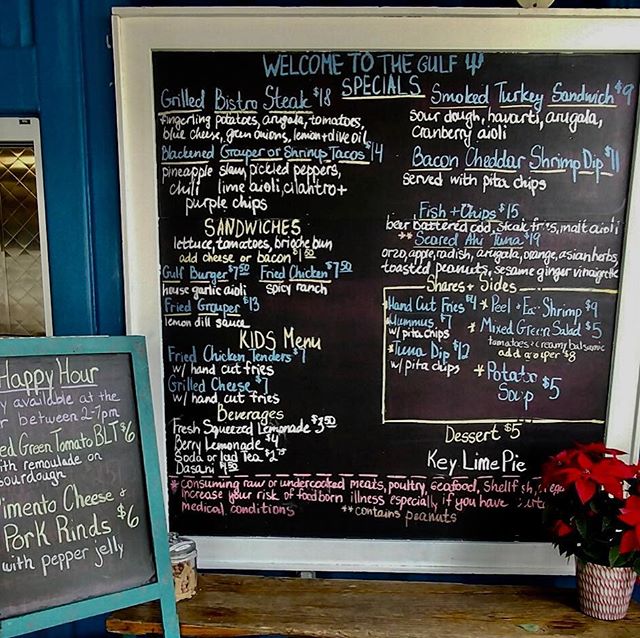 WELCOME TO THE GULF
SPECIALS
Grilled Bistro Steak $18
fingerling potatoes, arugala, tomatoes,
blue cheese, green onions, lemon + olive oil
Blackened Grouper or Shrimp Tacos $14
pineapple slaw, pickled peppers,
chili lime aioli, cilantro +
purple chips
SANDWICHES
lettuce, tomatoes, brioche bun
add cheese or bacon
Gulf Burger $7.50 Fried Chicken $7.50
house garlic aioli spicy ranch
Fried Grouper $13
lemon dill sauce
KIDS MENU
Fried Chicken Tenders $7
w/ hand cut fries
Grilled Cheese $7
w/ hand cut fries
Beverages
Fresh Squeezed Lemonade $3.50
Berry Lemonade $4
Soda or Iced Tea
Dasani
Smoked Turkey Sandwich $9
sour dough, havarti, arugala,
cranberry aioli
Bacon Cheddar Shrimp Dip $11
served with pita chips
Fish + Chips $15
beer battered cod, steak fries, malt aioli
**Seared Ahi Tuna $19
orzo, apple, radish, arugula, orange, asian herbs
toasted peanuts, sesame ginger vinaigrette
Shares + Sides
Hand Cut Fries $4
Hummus $7
w/ pita chips
*Tuna Dip $12
w/ pita chips
* Peel + Eat Shrimp $9
* Mixed Green Salad $5
tomatoes + creamy balsamic
add grouper $8
*Potato $5
Soup
Dessert $5
Key Lime Pie
* consuming raw or undercooked meats, poultry, seafood, shellfish,
increase your risk of foodborn illness especially if you have
medical conditions
**contains peanuts
Happy Hour
available at the
between 2-7pm
Green Tomato BLT $6
with remoulade on
sourdough
Pimento Cheese +
Pork Rinds $6
with pepper jelly